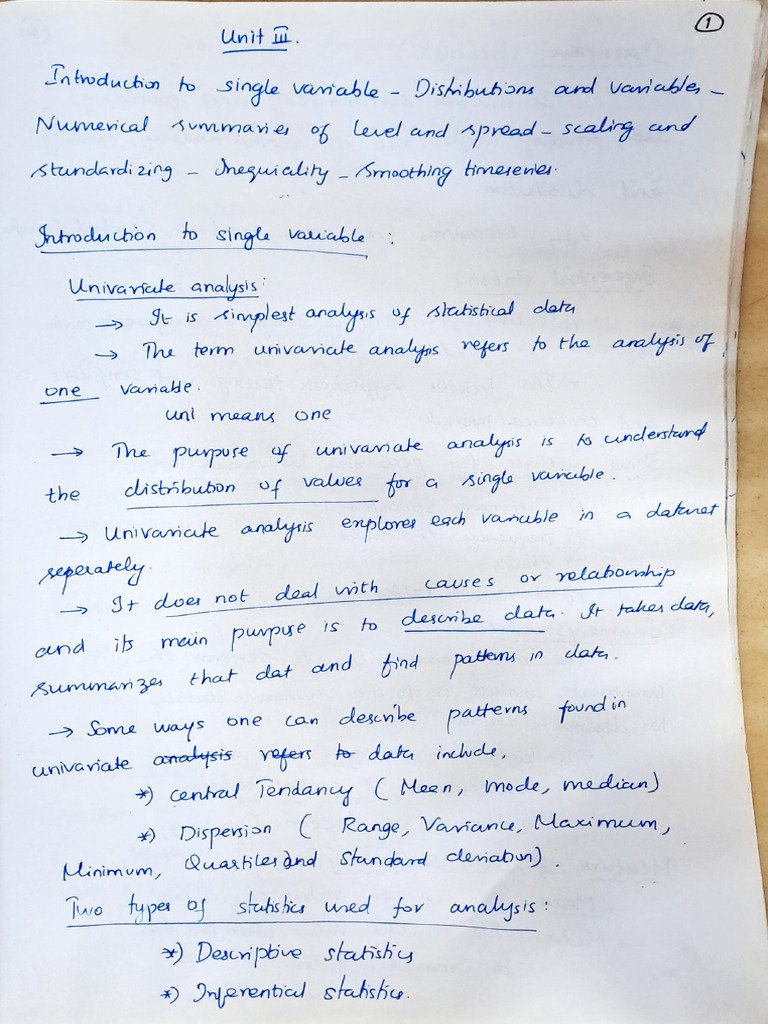 1
Unit III.
Introduction to single variable - Distributions and variables -
Numerical summaries of level and spread - scaling and
standardizing - Inequiality - Smoothing timeseries.
Introduction to single variable :
Univariate analysis:
→ It is simplest analysis of statistical data
→ The term univariate analysis refers to the analysis of
one variable.
uni means one
→ The purpose of univariate analysis is to understand
the distribution of values for a single variable.
→ Univariate analysis explores each variable in a dataset
seperately.
→ It does not deal with causes or relationship
and its main purpose is to describe data. It takes data,
summarizes that dat and find patterns in data.
→ Some ways one can describe patterns found in
univariate analysis refers to data include,
*) Central Tendancy ( Mean, mode, median)
*) Dispersion ( Range, Variance, Maximum,
Minimum, Quartiles and Standard deviation).
Two types of statistics used for analysis:
*) Descriptive statistics
*) Inferential statistics.